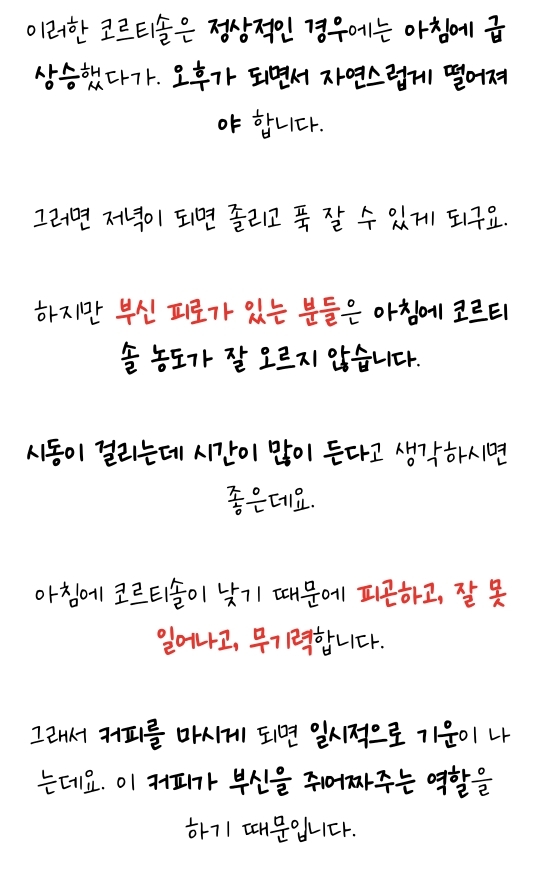 이러한 코르티솔은 정상적인 경우에는 아침에 급
상승했다가. 오후가 되면서 자연스럽게 떨어져
야 합니다.
그러면 저녁이 되면 졸리고 푹 잘 수 있게 되구요.
하지만 부신 피로가 있는 분들은 아침에 코르티
솔 농도가 잘 오르지 않습니다.
시동이 걸리는데 시간이 많이 든다고 생각하시면
좋은데요.
아침에 코르티솔이 낮기 때문에 피곤하고, 잘 못
일어나고, 무기력합니다.
그래서 커피를 마시게 되면 일시적으로 기운이 나
는데요. 이 커피가 부신을 쥐어짜주는 역할을
하기 때문입니다.